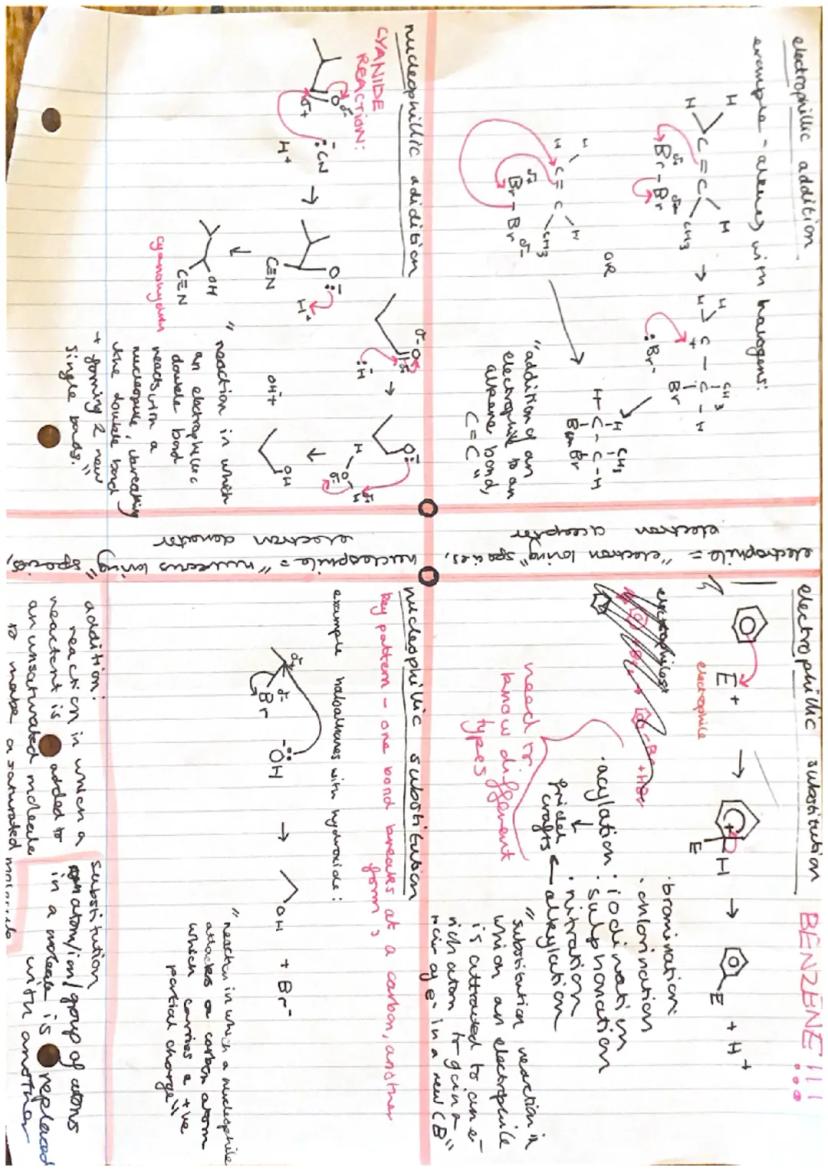 electrophillic addition
example - alkenes with halogens:
H
H
C = C
H
CH3
Br - Br
δ+
δ-
→
H
H
C - C - H
+
CH3
Br
:Br-
OR
H
H
C = C
H
CH3
δ+
Br - Br
δ-
H CH3
H - C - C - H
Br Br
"addition of an
electrophile to an
alkene bond,
C=C"
nucleophillic adidition
CYANIDE
REACTION:
O δ-
δ+
:CN
H+
→
O:-
C≡N
H+
OH
C≡N
cyanohydrin
δ- O
H δ+
:H-
→
O:-
H
O
H
δ+
δ-
OH
"reaction in which
an electrophilic
double bond
reacts with a
nucleophile, breaking
the double bond
+ forming 2 new
single bonds."
electrophile = "electron loving" species,
electron acceptor
nucleophile = "nucleus loving" species,
electron donator
electrophillic substitution BENZENE!!!
E+
electrophile
→
+
E
H
→
E
+ H+
electrophiles:
need to
know different
types
· bromination
· chlorination
· iodination
· sulphonation
· nitration
· acylation
· alkylation
friedel
crafts
"substitution reaction in
which an electrophile
is attracted to an e-
rich atom
in a new CB"
nucleophillic substitution
key pattern - one bond breaks at a carbon, another
forms
example haloalkanes with hydroxide:
δ+
δ-
Br
-:OH
→
OH + Br-
"reaction in which a nucleophile
attacks a carbon atom
which carries a +ve
partial charge"
addition:
reaction in which a
reactant is added to
an unsaturated molecule
to make a saturated molecule
substitution
atom/ion/group of atoms
in a molecule is replaced
with another